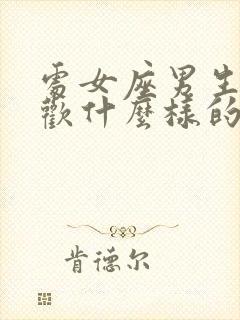 處女座男生
歡什麼樣的
肯德尔